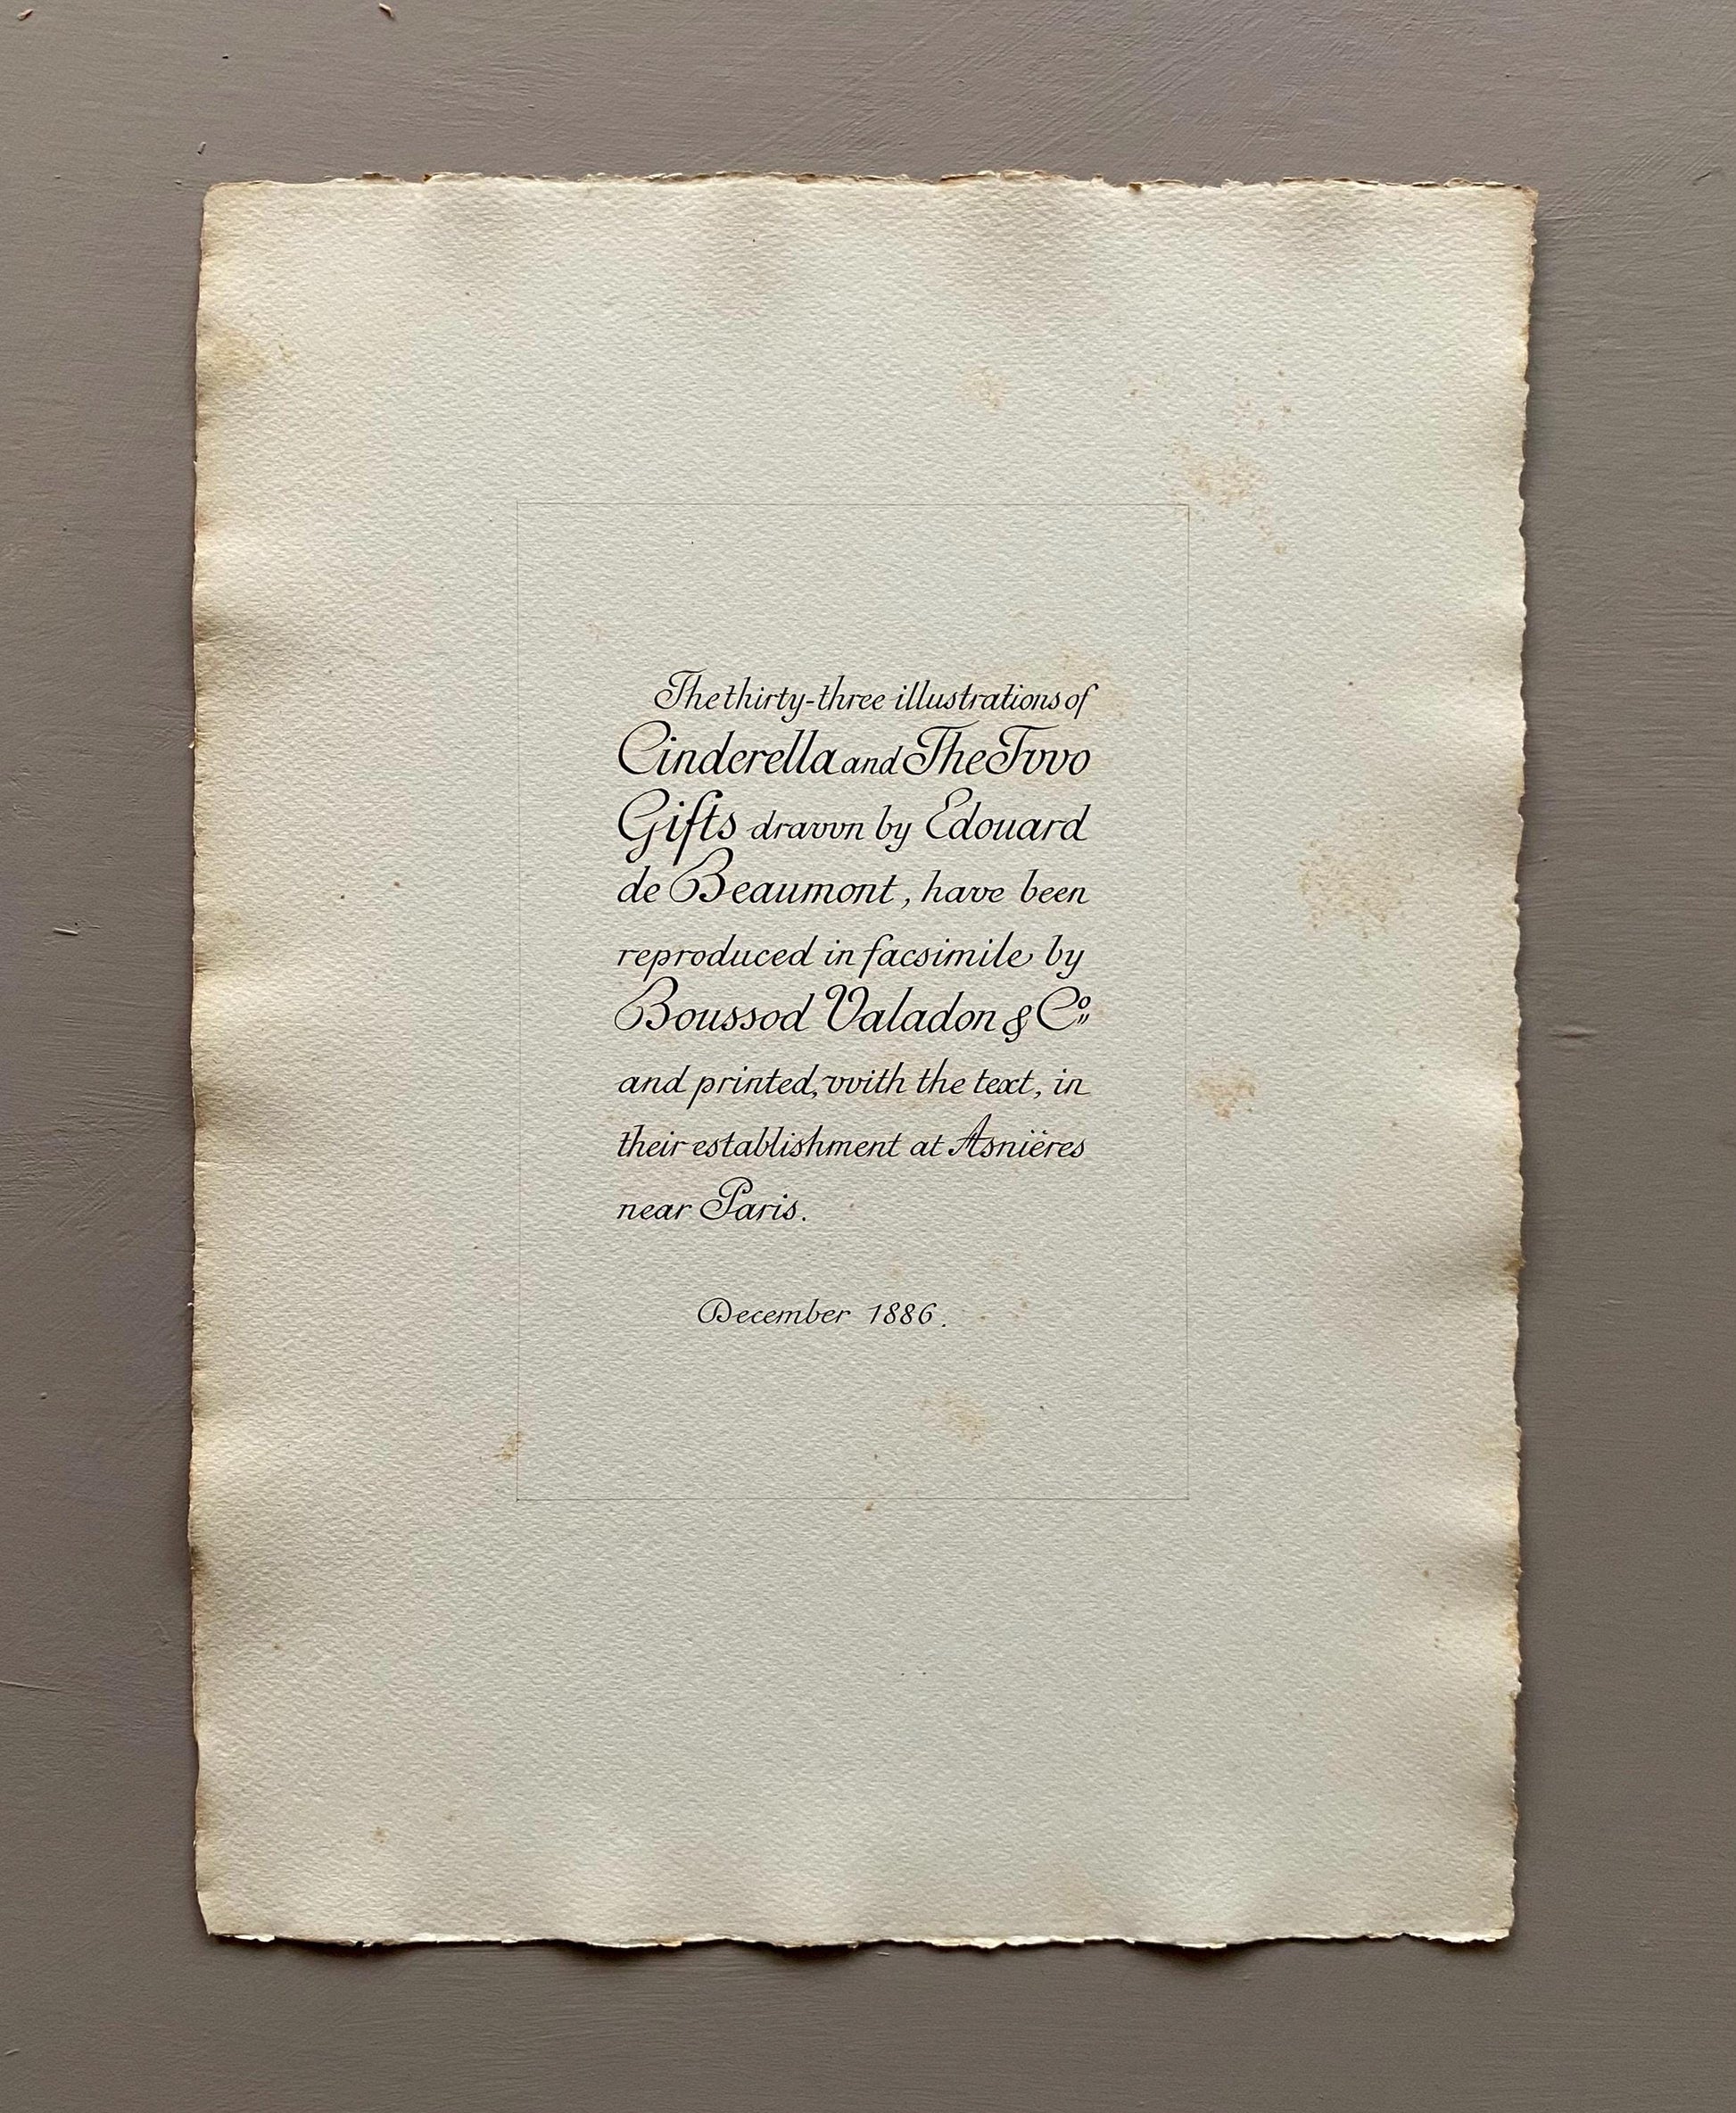 The thirty-three illustrations of
Cinderella and The Two
Gifts drawn by Edouard
de Beaumont, have been
reproduced in facsimile by
Boussod Valadon & Cº
and printed, with the text, in
their establishment at Asnières
near Paris.
December 1886.